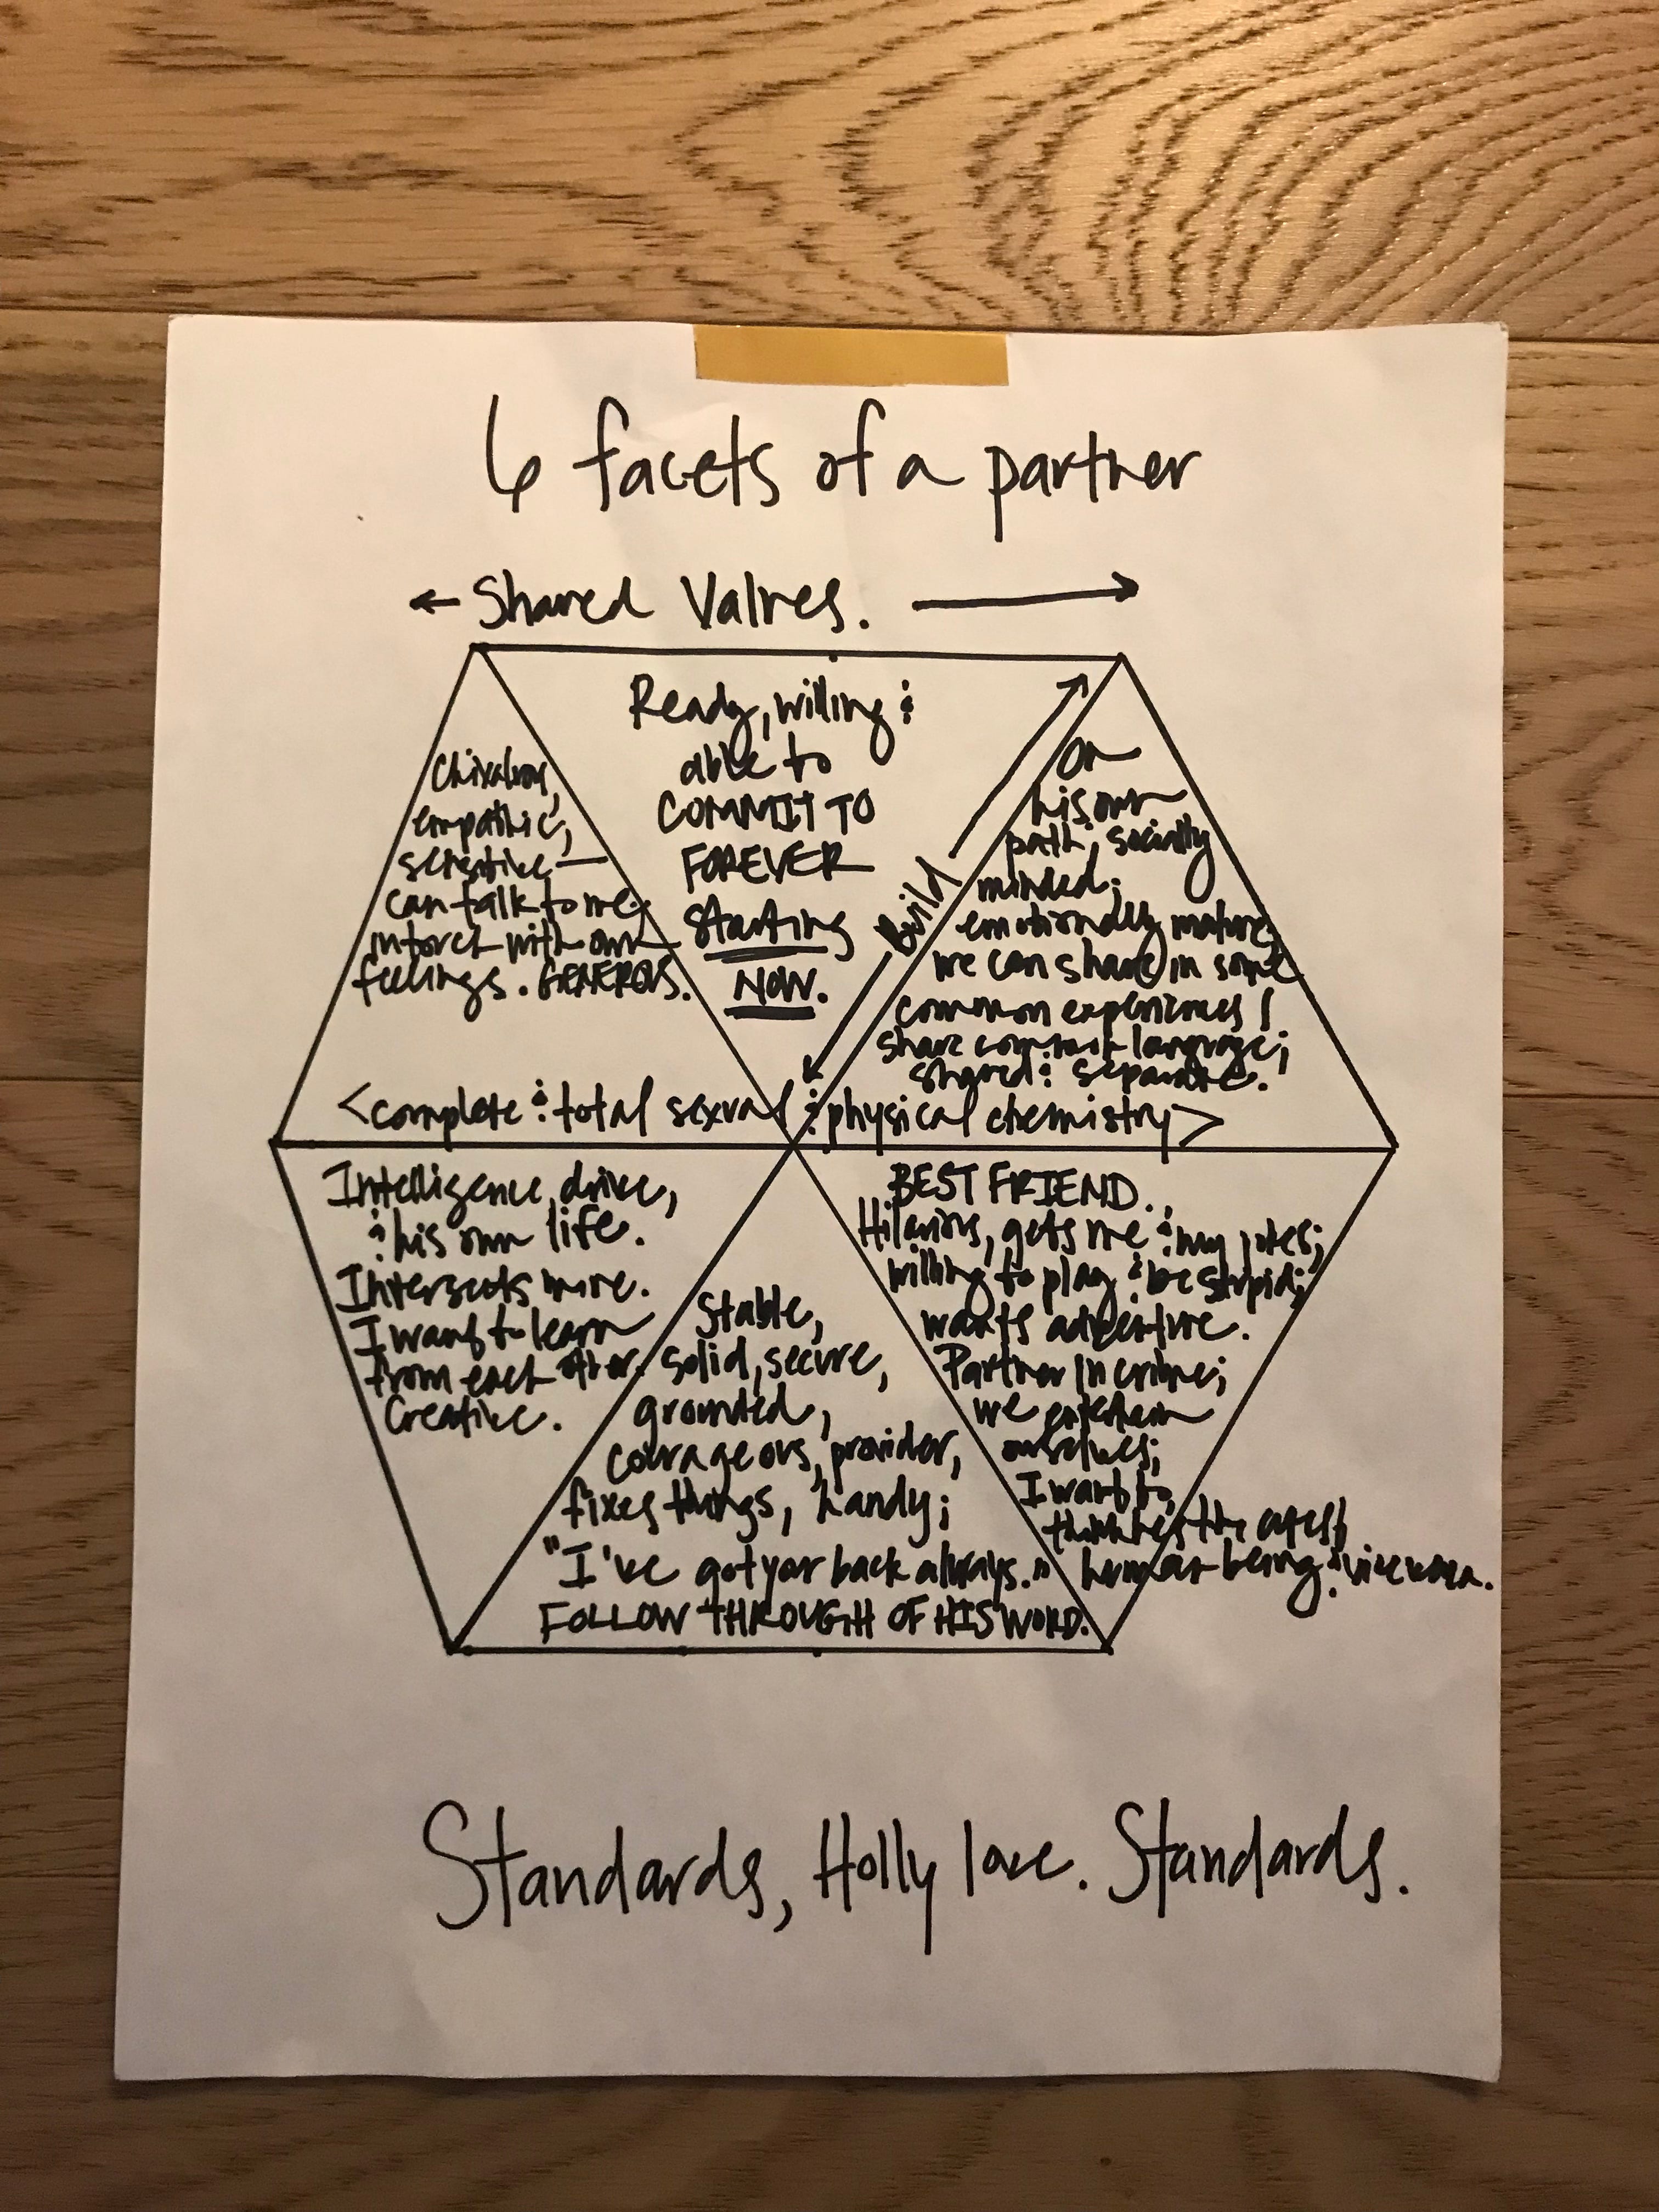 6 facets of a partner
← Shared Values. →
Ready, willing &
able to
COMMIT TO
FOREVER
Starting
NOW.
Chivalrous,
empathic,
sensitive—
can talk to me,
in touch with own
feelings. GENEROUS.
Build
On
his own
path, socially
minded;
emotionally mature;
we can share in some
common experiences /
share common language;
shared & separate.
<complete & total sexual & physical chemistry>
Intelligence, drive,
& his own life.
Intersects mine.
I want to learn
from each other.
Creative.
Stable,
solid, secure,
grounded,
courageous, provider,
fixes things, handy;
"I've got your back always."
FOLLOW THROUGH OF HIS WORD.
BEST FRIEND.
Hilarious, gets me & my jokes;
willing to play & be stupid;
wants adventure.
Partner in crime;
we entertain
ourselves;
I want to
think he's the cutest
human being & vice versa.
Standards, Holly love. Standards.